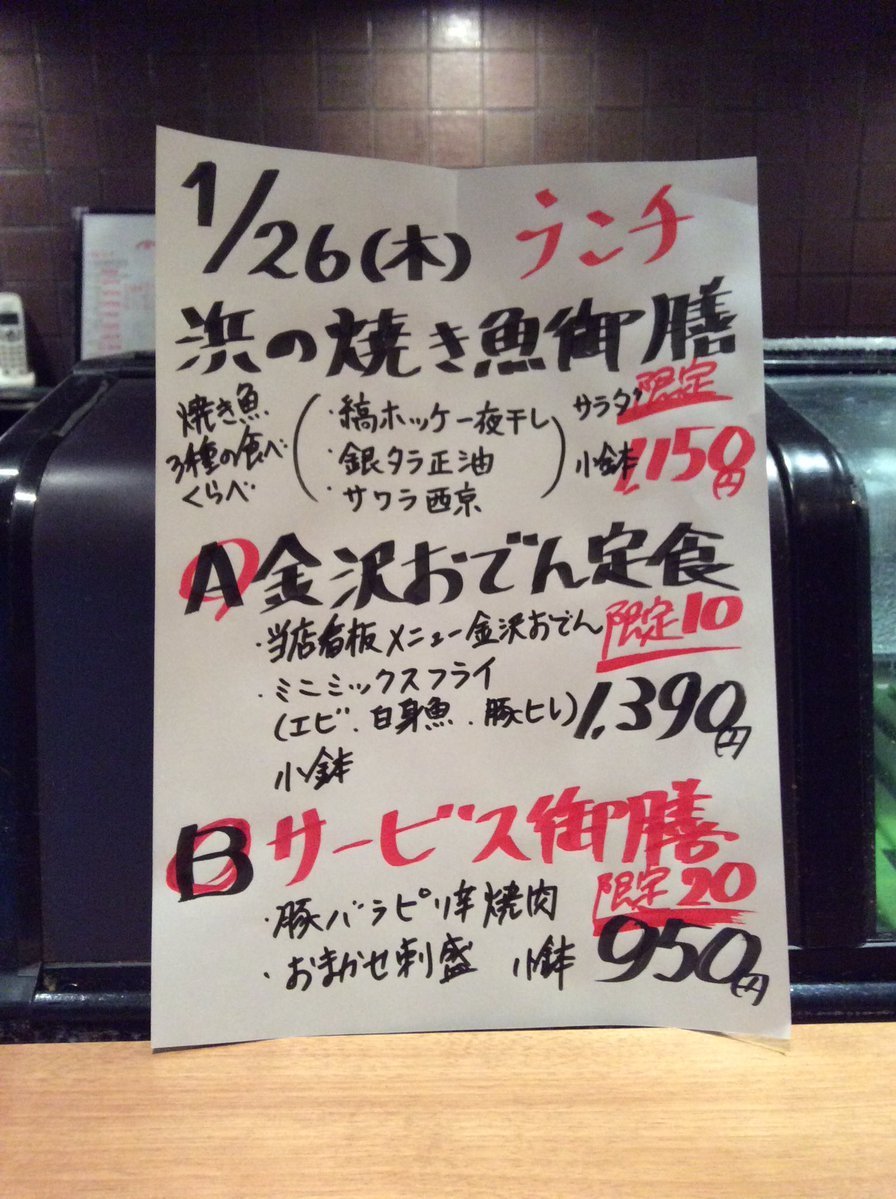 1/26(木) ランチ
浜の焼き魚御膳
限定
焼き魚
3種の食べ
くらべ
(・縞ホッケ一夜干し
・銀タラ正油
・サワラ西京)
サラダ
小鉢
1,150円
A 金沢おでん定食
・当店看板メニュー金沢おでん
限定10
・ミニミックスフライ
(エビ.白身魚.豚ヒレ)
1,390円
小鉢
B サービス御膳
限定20
・豚バラピリ辛焼肉
・おまかせ刺盛 小鉢
950円